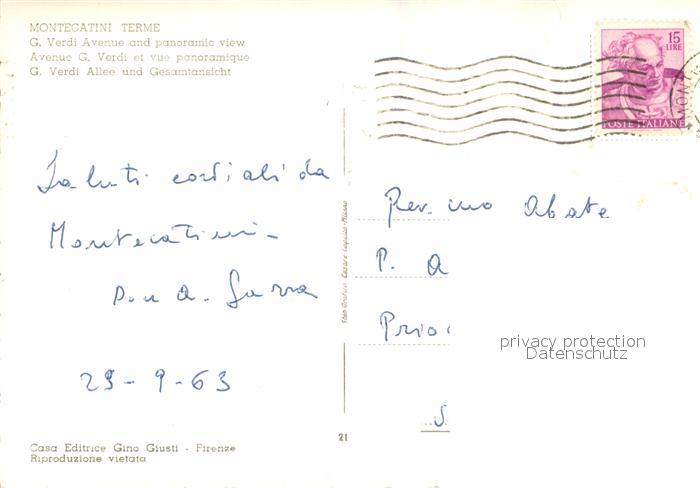 MONTECATINI TERME
G. Verdi Avenue and panoramic view
Avenue G. Verdi et vue panoramique
G. Verdi Allee und Gesamtansicht
15
LIRE
POSTE ITALIANE
Saluti cordiali da
Montecatini -
Don A.
29 - 9 - 63
Rev.mo Abate
P. A
Prio
S.
privacy protection
Datenschutz
21
Casa Editrice Gino Giusti - Firenze
Riproduzione vietata